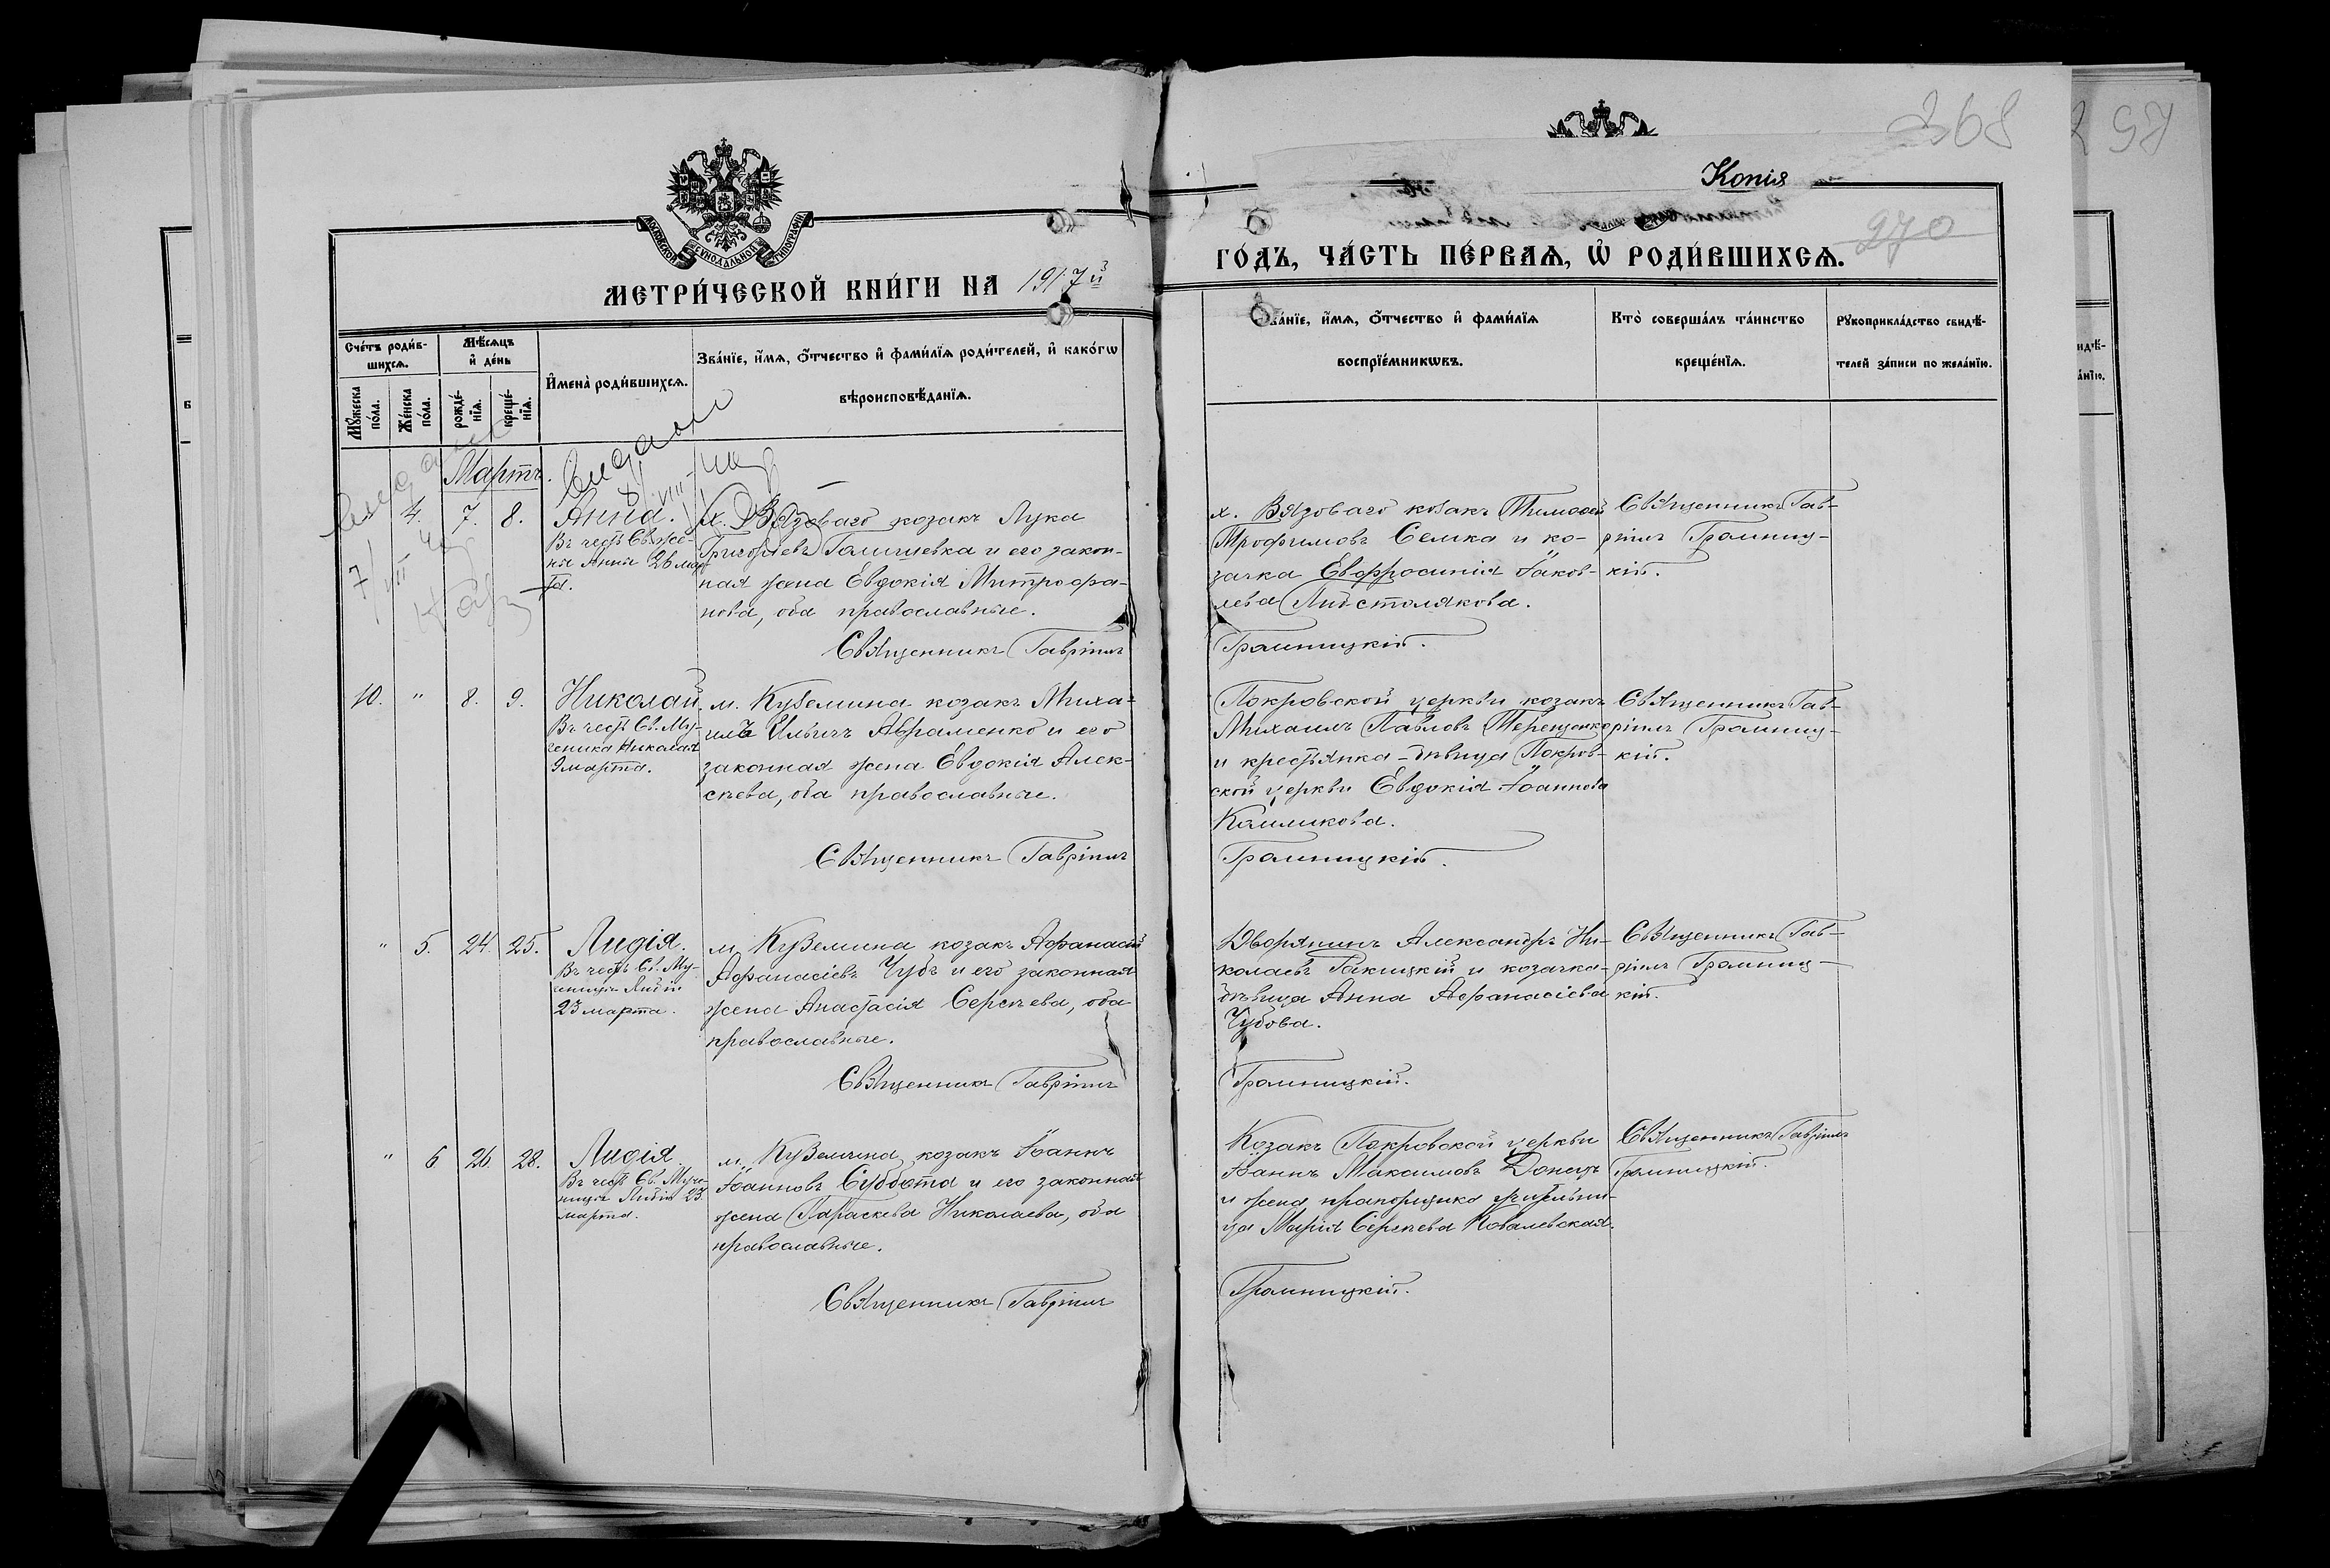 368
297
Копія
270
МОСКОВСКОЙ СѴНОДАЛЬНОЙ ТИПОГРАФІИ
МЕТРИ́ЧЕСКОЙ КНИ́ГИ НА 1917й
ГО́ДЪ, ЧА́СТЬ ПЕ́РВАѦ, Ѡ҆ РОДИ́ВШИХСѦ.
Сче́тъ роди́в-
шихсѧ.
Мꙋ́жеска по́ла.
Же́нска по́ла.
Мѣ́сѧцъ
и҆ де́нь
рожде́-нїѧ.
креще́-нїѧ.
И҆мена̀ роди́вшихсѧ.
Зва́нїе, и҆́мѧ, ѻ҆́тчество и҆ фами́лїѧ роди́телей, и҆ како́гѡ
вѣроисповѣ́данїѧ.
Зва́нїе, и҆́мѧ, ѻ҆́тчество и҆ фами́лїѧ
воспрїе́мникѡвъ.
Кто̀ соверша́лъ та́инство
креще́нїѧ.
Рꙋкоприкла́дство свидѣ́-
телей за́писи по жела́нїю.
Мартъ.
4. 7. 8.
Анна.
Въ честь Св. же-
ны Анны 26 мар-
та.
х. Вязоваго козакъ Лука
Григорьевъ Галишевка и его закон-
ная жена Евдокія Митрофа-
нова, оба православные.
Священникъ Гавріилъ
х. Вязоваго козакъ Тимофей
Трофимовъ Семка и ко-
зачка Евфросинія Іаков-
лева
Громницкій.
Священникъ Гав-
ріилъ Громниц-
кій.
10. " 8. 9.
Николай.
Въ честь Св. Му-
ченика Николая
9 марта.
м. Куземина козакъ Миха-
илъ Ильичъ Авраменко и его
законная жена Евдокія Алек-
сѣева, оба православные.
Священникъ Гавріилъ
Покровской церкви козакъ
Михаилъ Павловъ Терещенко
и крестьянка-дѣвица Покров-
ской церкви Евдокія Іоаннова
Калмикова.
Громницкій.
Священникъ Гав-
ріилъ Громниц-
кій.
" 5. 24. 25.
Лидія.
Въ честь Св. Му-
ченицы Лидіи
23 марта.
м. Куземина козакъ Афанасій
Афанасіевъ Чубъ и его законная
жена Анастасія Сергѣева, оба
православные.
Священникъ Гавріилъ
Дворянинъ Александръ Ни-
колаевъ Ракицкій и козачка-
дѣвица Анна Афанасіева
Чубова.
Громницкій.
Священникъ Гав-
ріилъ Громниц-
кій.
" 6 26. 28.
Лидія
Въ честь Св. Муче-
ницы Лидіи 23
марта.
м. Куземина козакъ Іоаннъ
Іоанновъ Суббота и его законная
жена Параскева Николаева, оба
православные.
Священникъ Гавріилъ
Козакъ Покровской церкви
Іоаннъ Максимовъ Донецъ
и жена прапорщика
Марія Сергѣева Ковалевская.
Громницкій.
Священникъ Гавріилъ
Громницкій.